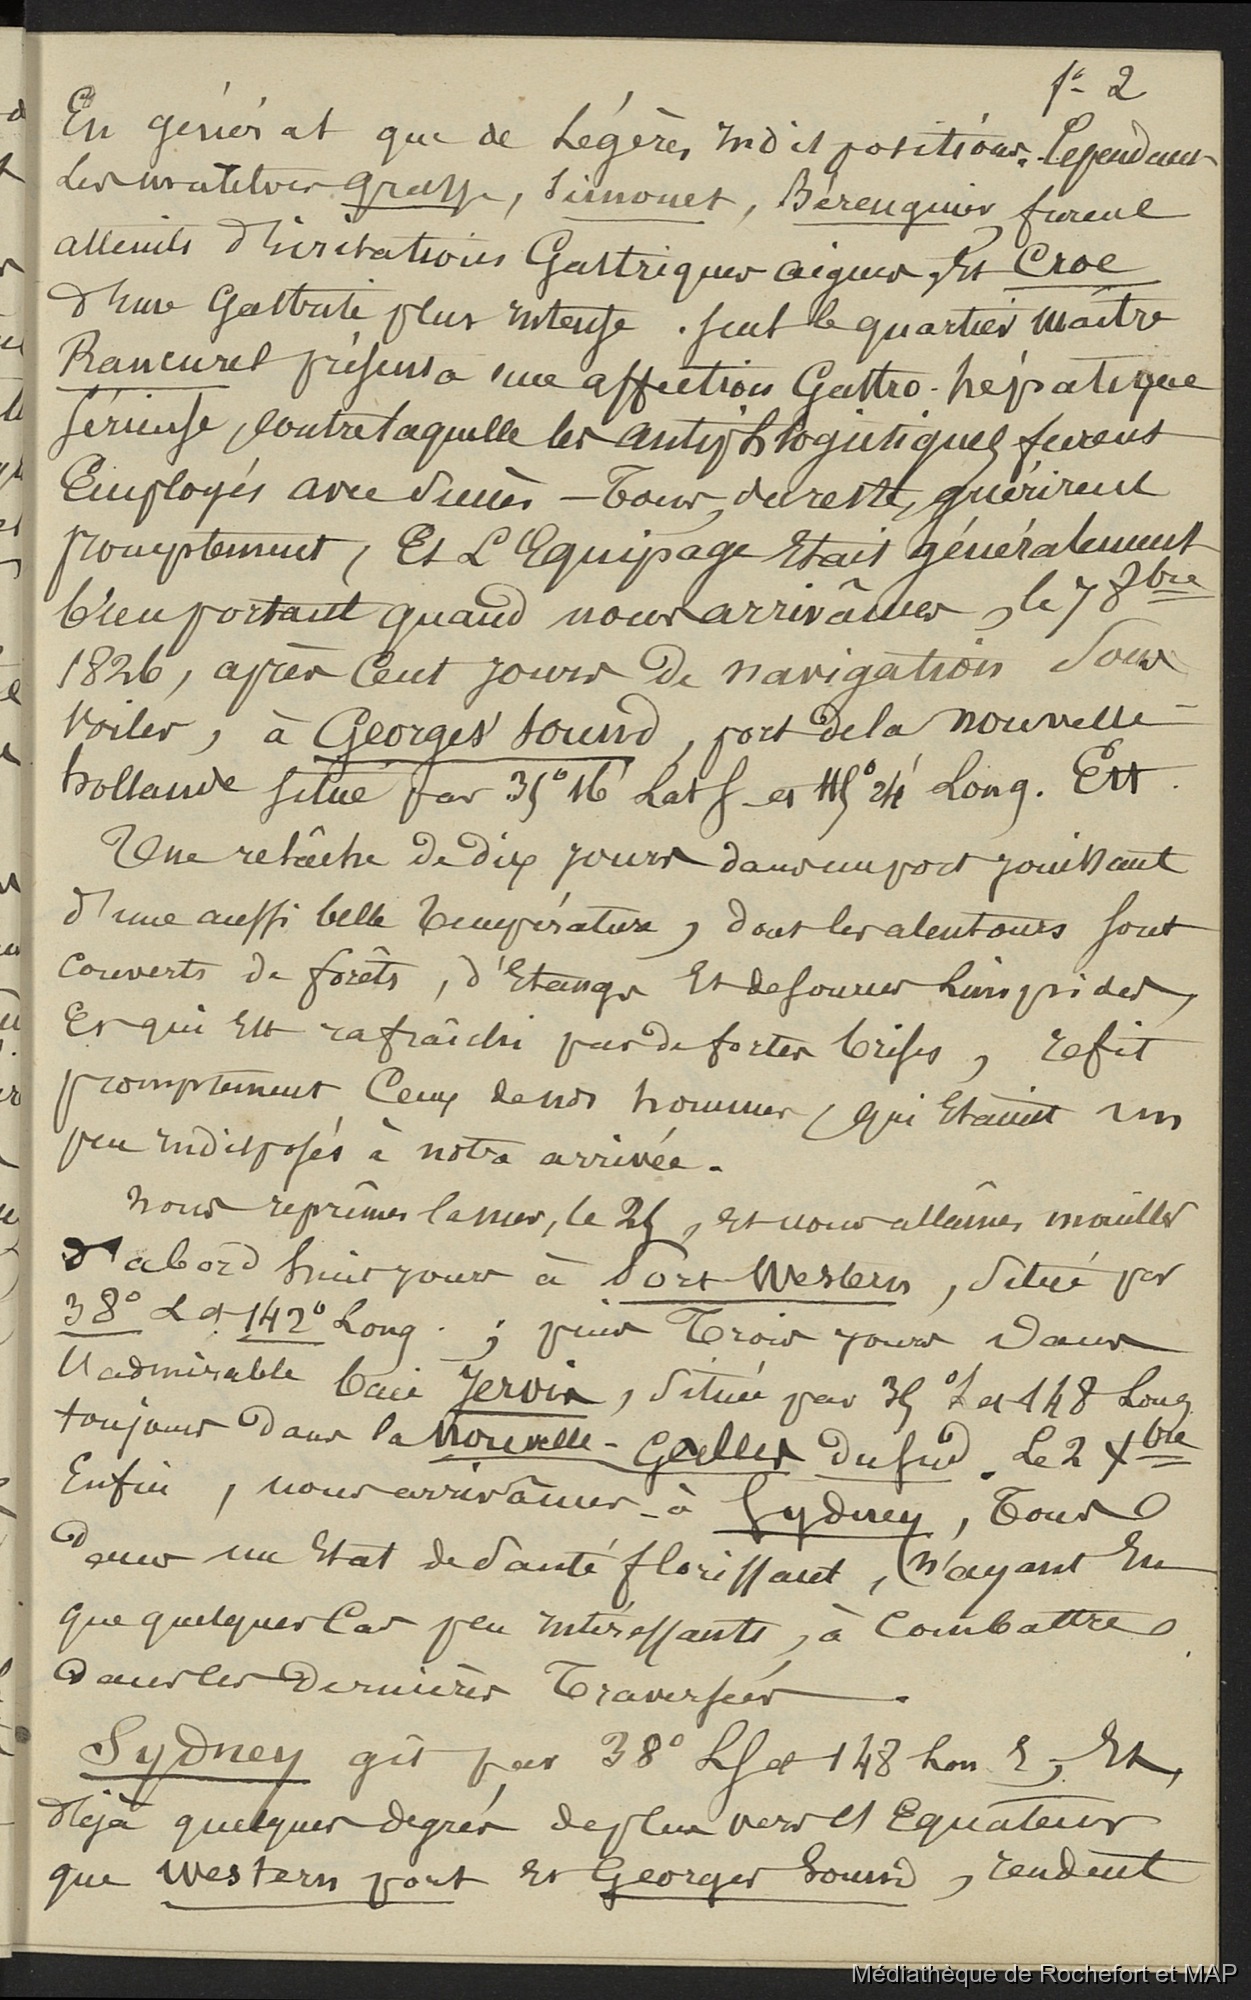 f° 2
En général que de légères indispositions. Cependant
les matelots Grasse, Simonet, Bérenguier furent
atteints d'irritations Gastriques aigues, Et Croe
d'une Gastrite plus intense. Seul le quartier maître
Rancurel présenta une affection Gastro-hépatique
sérieuse, contre laquelle les antiphlogistiques furent
Employés avec succès – Tous, du reste, guérirent
promptement, Et L'Equipage Etait généralement
bien portant quand nous arrivâmes, le 7 8bre
1826, après Cent jours de navigation sous
voiles, à Georges' Sound, port de la Nouvelle-
hollande situé par 35° 16' Lat S et 115° 24' Long. Est.
Une relâche de dix jours dans un port jouissant
d'une aussi belle Température, dont les alentours sont
couverts de forêts, d'Etangs Et de sources Limpides,
Et qui Est rafraîchi par de fortes brises, refit
promptement Ceux de nos hommes, qui Etaient un
peu indisposés à notre arrivée.
Nous reprîmes la mer, le 25, Et nous allâmes mouiller
d'abord huit jours à Port Western, situé par
38° L et 142° Long. ; puis Trois jours dans
l'admirable baie Jervis, située par 35° L et 148 Long
toujours dans la Nouvelle-Galles du Sud. Le 2 Xbre
Enfin, nous arrivâmes à Sydney, Tous
dans un Etat de santé florissant, n'ayant Eu
que quelques Cas peu intéressants, à Combattre
dans les dernières Traversées.
Sydney gît par 38° LS et 148 Lon E, Et,
déjà quelques degrés de plus vers l'Equateur
que Western port Et Georges Sound, rendent
Médiathèque de Rochefort et MAP